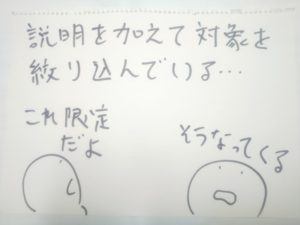 説明を加えて対象を
絞り込んでいる…
これ限定
だよ
そうなってくる